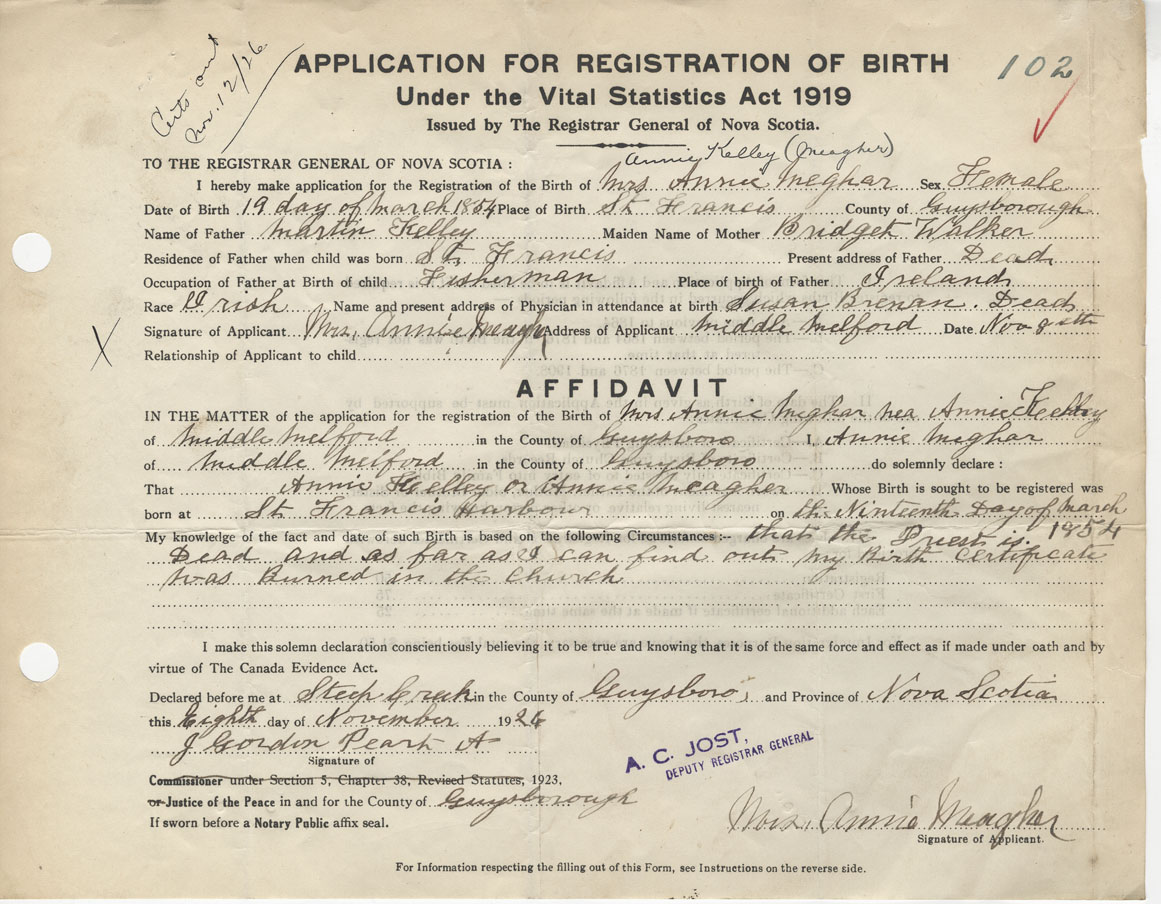 Certs out
Nov. 12/26
102
APPLICATION FOR REGISTRATION OF BIRTH
Under the Vital Statistics Act 1919
Issued by The Registrar General of Nova Scotia.
Annie Kelley (Meagher)
TO THE REGISTRAR GENERAL OF NOVA SCOTIA :
I hereby make application for the Registration of the Birth of Mrs Annie Meghar Sex Female
Date of Birth 19 day of March 1854 Place of Birth St Francis County of Guysborough
Name of Father Martin Kelley Maiden Name of Mother Bridget Walker
Residence of Father when child was born St. Francis Present address of Father Dead
Occupation of Father at Birth of child Fisherman Place of birth of Father Ireland
Race Irish Name and present address of Physician in attendance at birth Susan Brenan. Dead
Signature of Applicant Mrs. Annie Meagher Address of Applicant Middle Melford Date Nov 8th
X
Relationship of Applicant to child
AFFIDAVIT
IN THE MATTER of the application for the registration of the Birth of Mrs Annie Meghar nea Annie Kelley
of Middle Melford in the County of Guysboro I, Annie Meghar
of Middle Melford in the County of Guysboro do solemnly declare :
That Annie Kelley or Annie Meagher Whose Birth is sought to be registered was
born at St Francis Harbour on the Ninteenth Day of March
1854
My knowledge of the fact and date of such Birth is based on the following Circumstances :-- that the Priest is
Dead and as far as I can find out my Birth Certificate
was Burned in the Church
I make this solemn declaration conscientiously believing it to be true and knowing that it is of the same force and effect as if made under oath and by
virtue of The Canada Evidence Act.
Declared before me at Steep Creek in the County of Guysboro, and Province of Nova Scotia
this Eighth day of November 1926
J Gordon
Signature of
Commissioner under Section 5, Chapter 38, Revised Statutes, 1923,
or Justice of the Peace in and for the County of Guysborough
If sworn before a Notary Public affix seal.
A. C. JOST,
DEPUTY REGISTRAR GENERAL
Mrs. Annie Meagher
Signature of Applicant.
For Information respecting the filling out of this Form, see Instructions on the reverse side.